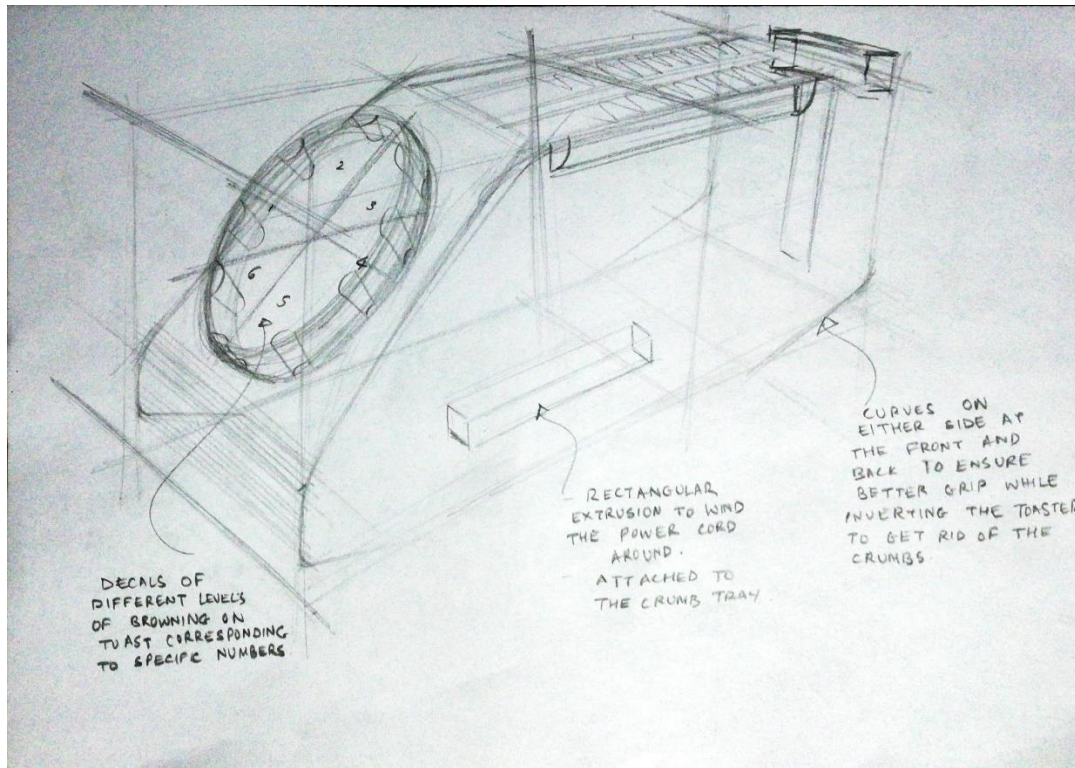 1
2
3
4
5
6
DECALS OF
DIFFERENT LEVELS
OF BROWNING ON
TOAST CORRESPONDING
TO SPECIFIC NUMBERS.
- RECTANGULAR
EXTRUSION TO WIND
THE POWER CORD
AROUND.
- ATTACHED TO
THE CRUMB TRAY.
CURVES ON
EITHER SIDE AT
THE FRONT AND
BACK TO ENSURE
BETTER GRIP WHILE
INVERTING THE TOASTER
TO GET RID OF THE
CRUMBS.